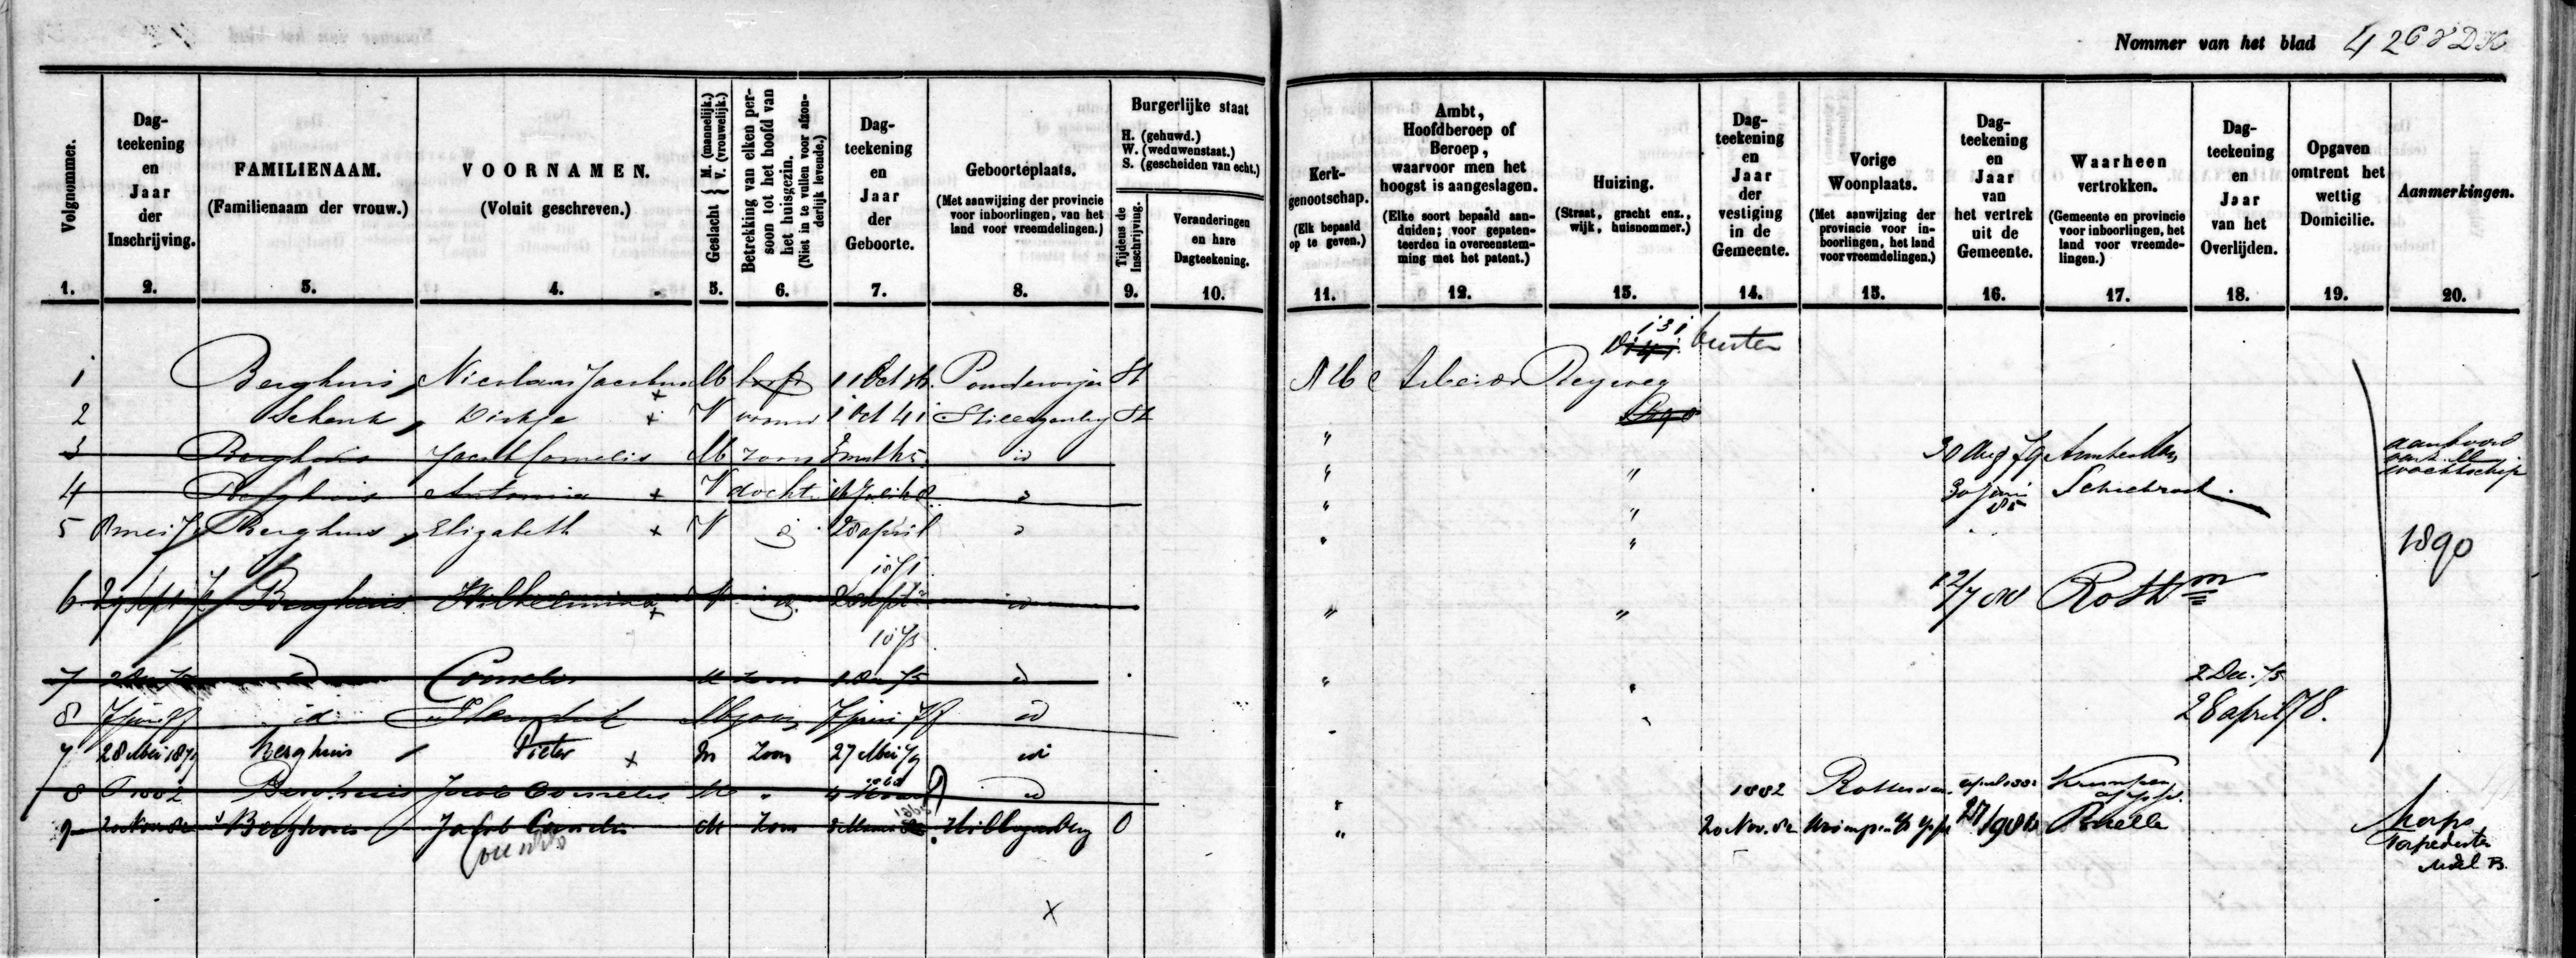 Nommer van het blad 426
Volgnommer.
Dag-
teekening
en
Jaar
der
Inschrijving.
FAMILIENAAM.
(Familienaam der vrouw.)
VOORNAMEN.
(Voluit geschreven.)
Geslacht { M. (mannelijk.) V. (vrouwelijk.)
Betrekking van elken per-
soon tot het hoofd van
het huisgezin.
(Niet in te vullen voor afzon-
derlijk levende.)
Dag-
teekening
en
Jaar
der
Geboorte.
Geboorteplaats.
(Met aanwijzing der provincie
voor inboorlingen, van het
land voor vreemdelingen.)
Burgerlijke staat
H. (gehuwd.)
W. (weduwenstaat.)
S. (gescheiden van echt.)
Tijdens de
Inschrijving.
Veranderingen
en hare
Dagteekening.
Kerk-
genootschap.
(Elk bepaald
op te geven.)
Ambt,
Hoofdberoep of
Beroep,
waarvoor men het
hoogst is aangeslagen.
(Elke soort bepaald aan-
duiden; voor gepaten-
teerden in overeenstem-
ming met het patent.)
Huizing.
(Straat, gracht enz.,
wijk, huisnommer.)
Dag-
teekening
en
Jaar
der
vestiging
in de
Gemeente.
Vorige
Woonplaats.
(Met aanwijzing der
provincie voor in-
boorlingen, het land
voor vreemdelingen.)
Dag-
teekening
en
Jaar
van
het vertrek
uit de
Gemeente.
Waarheen
vertrokken.
(Gemeente en provincie
voor inboorlingen, het
land voor vreemde-
lingen.)
Dag-
teekening
en
Jaar
van het
Overlijden.
Opgaven
omtrent het
wettig
Domicilie.
Aanmerkingen.
1. 2. 3. 4. 5. 6. 7. 8. 9. 10. 11. 12. 13. 14. 15. 16. 17. 18. 19. 20.
131 buiten
1 Berghuis Nicolaas Jacobus M hoofd 11 Oct Pouderoijen H N H Arbeider
2 Schenk Dirkje x V vrouw 1 Oct 41 Hillegersberg H "
3 Berghuis Jacob Cornelis M zoon id " " 30 Aug 79 Amsterdam aan boord
wachtschip
4 Berghuis Antonia x V docht " " 30 Juni 85 Schiebroek
5 8 mei Berghuis Elizabeth x V id 28 april 1871 " " 1890
6 29 Sept Berghuis Wilhelmina x V id 1873 id " " 12/7 Rottm
7 2 Dec 75 id Cornelis M zoon 1 Dec 75 id " " 2 Dec. 75
8 7 juni 77 id M zoon 7 juni 77 id 28 april 78.
7 28 Mei 1879 Berghuis Pieter x M zoon 27 Mei 79 id
8 1882 Berghuis Jacob Cornelis M " id " 1882 Rotterdam april 1882 Krimpen
9 20 Nov 82 Berghuis Jacob Cornelis M zoon Hillegersberg O " 20 Nov. 82 Brielle Korps
Cornelis Torpedisten
x